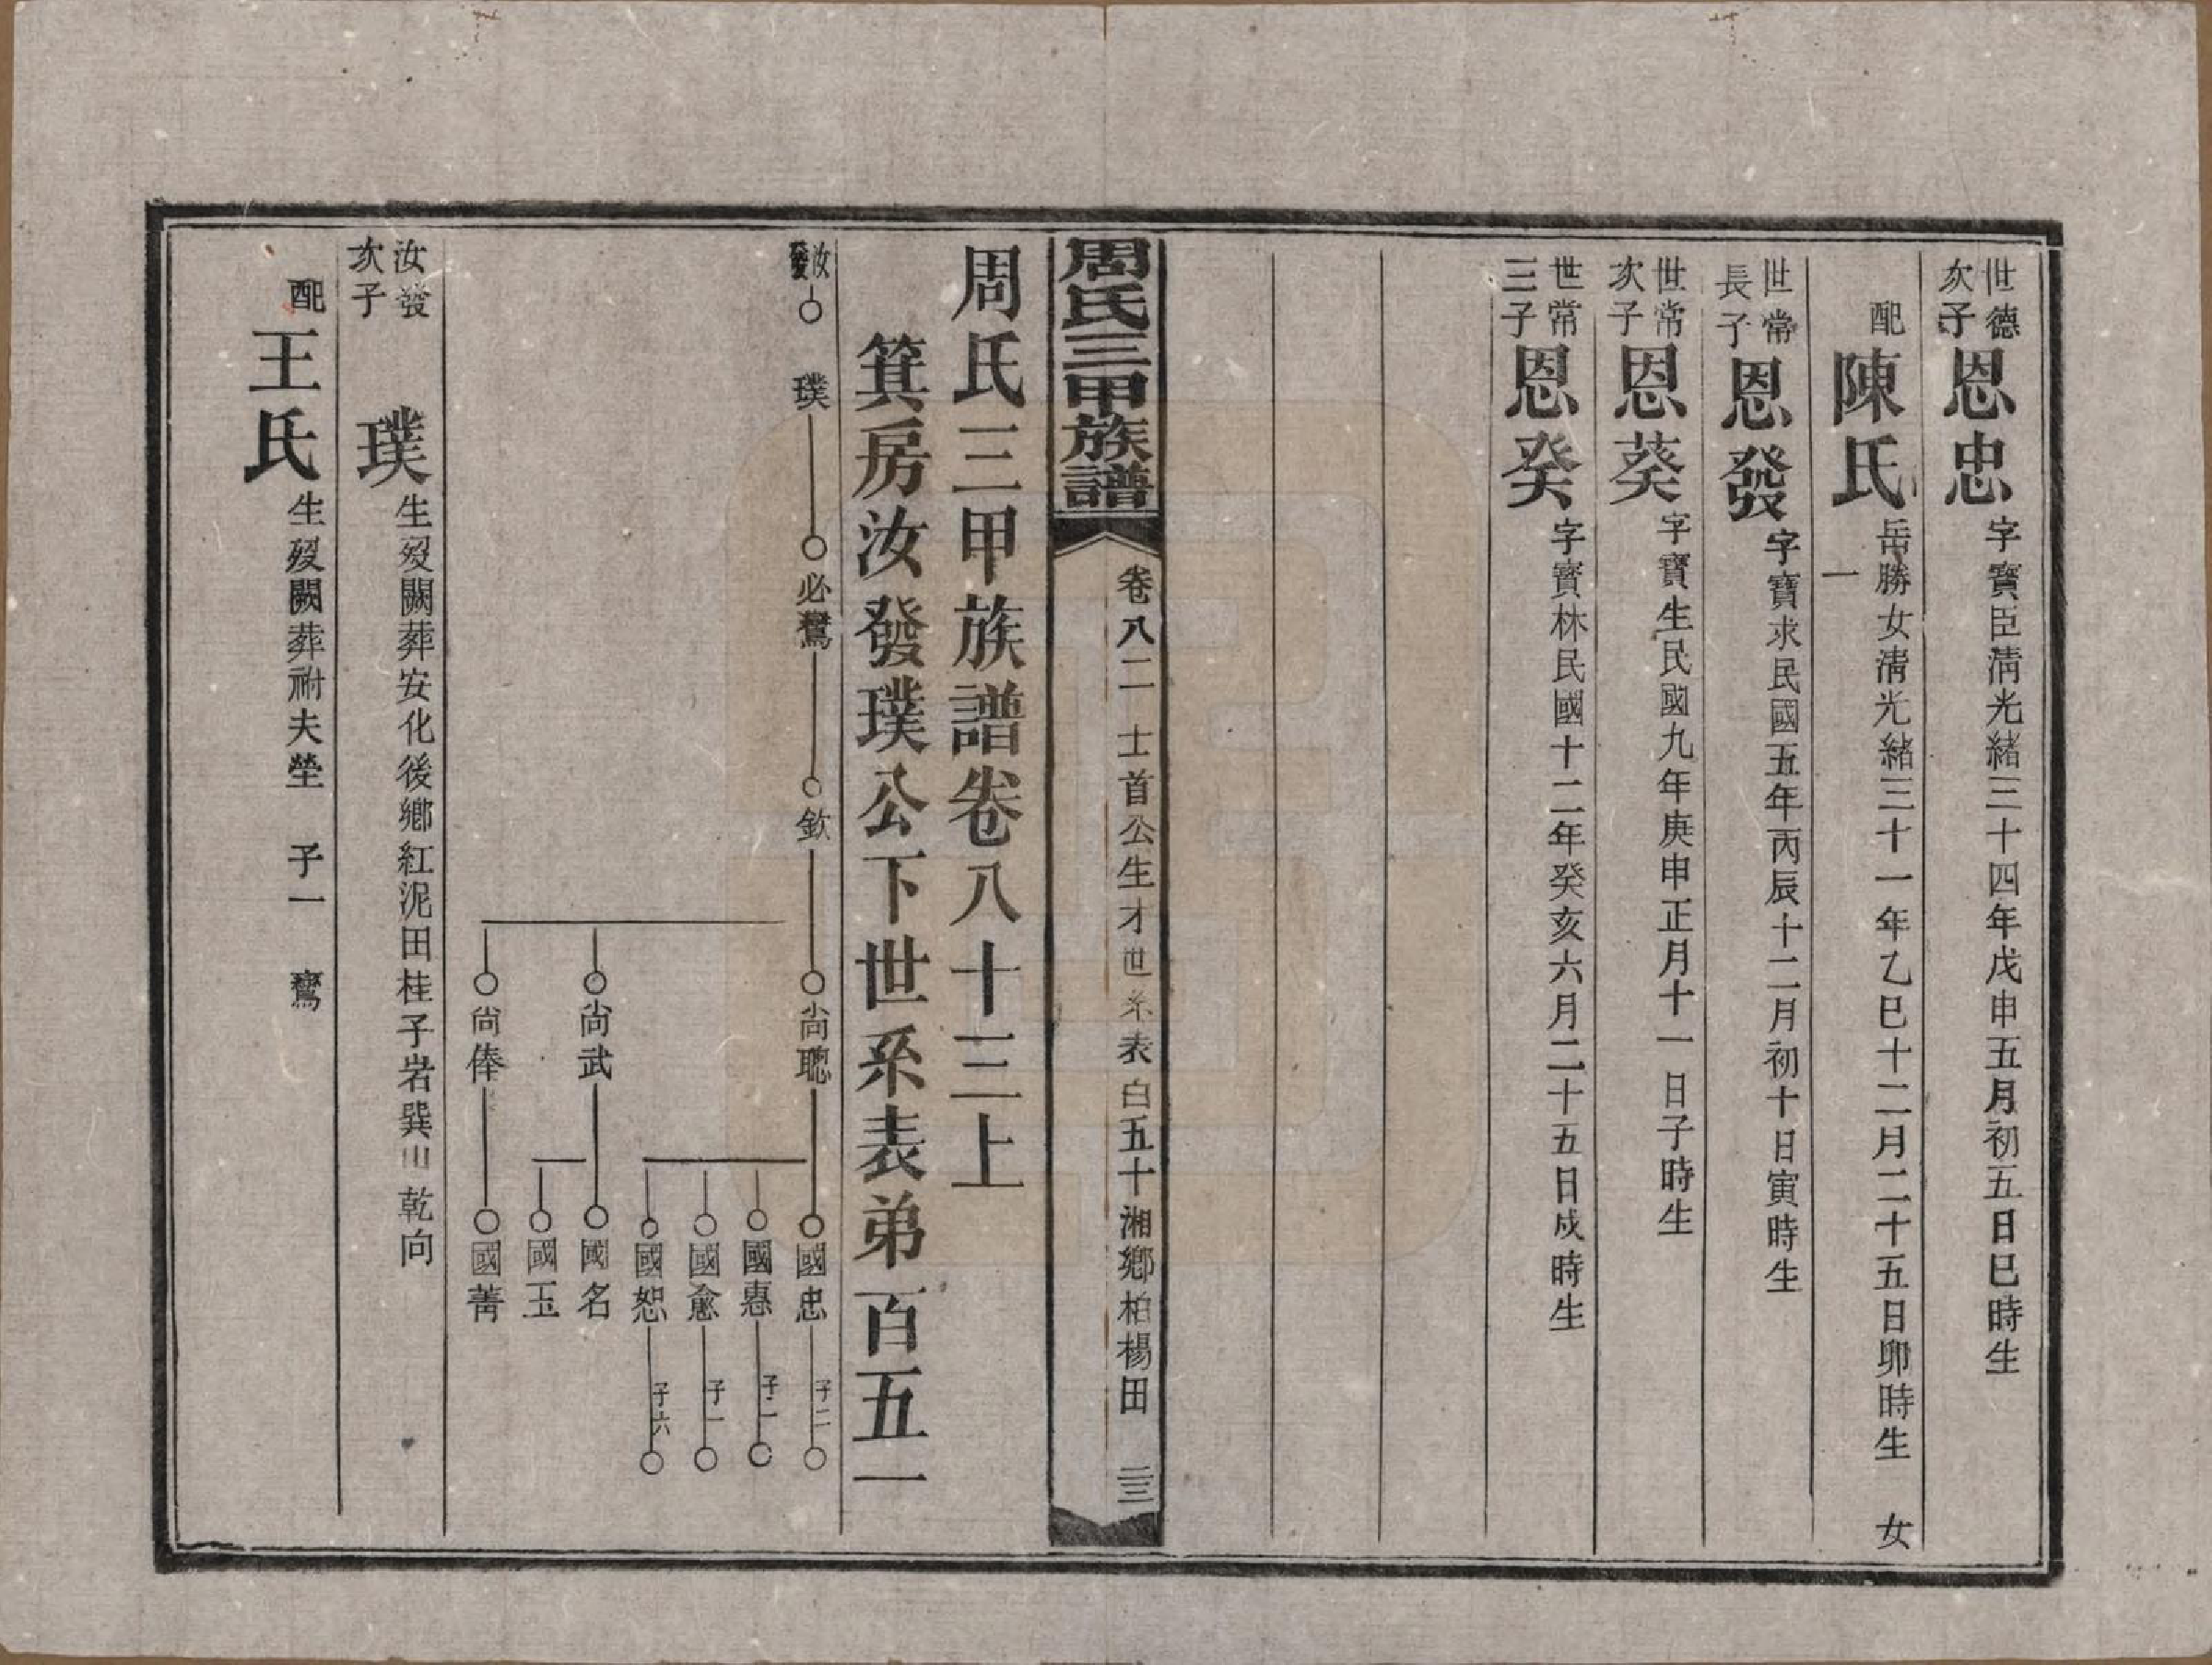 世德次子 恩忠 字寶臣淸光緒三十四年戊申五月初五日巳時生
配 陳氏 岳勝女淸光緒三十一年乙巳十二月二十五日卯時生 女一
世常長子 恩發 字寶求民國五年丙辰十二月初十日寅時生
世常次子 恩葵 字寶生民國九年庚申正月十一日子時生
世常三子 恩癸 字寶林民國十二年癸亥六月二十五日戌時生
周氏三甲族譜 卷八二 士首公生才世系表白五十湘鄉柏楊田 三三
周氏三甲族譜卷八十三上
箕房汝發璞公下世系表弟百五一
汝發 璞 必鸑 欽 尚聰 國忠 子二
國惠 子一
國愈 子一
國恕 子六
尚武 國名
國玉
尚俸 國菁
汝發次子 璞 生歿闕葬安化後鄉紅泥田桂子岩巽山乾向
配 王氏 生歿闕葬祔夫塋 子一 鸑